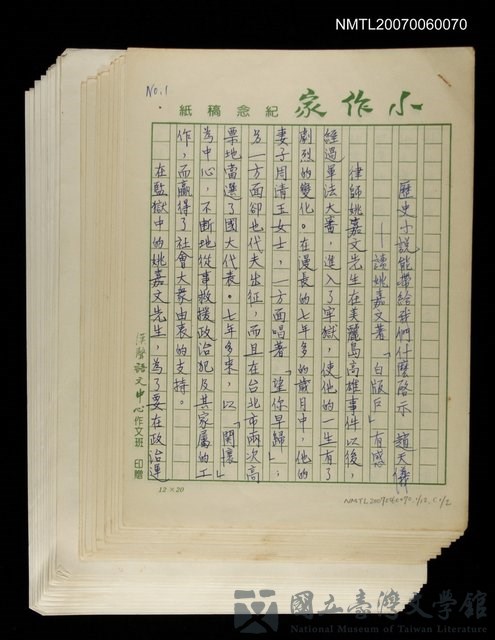 NMTL20070060070
No.1
小作家 紀念稿紙
歷史小說能帶給我們什麼啟示 趙天儀
——讀姚嘉文著「白版戶」有感
律師姚嘉文先生在美麗島高雄事件以後，
經過軍法大審，進入了牢獄，使他的一生有了
劇烈的變化。在漫長的七年多的歲月中，他的
妻子周清玉女士，一方面唱著「望你早歸」；
另一方面卻也代夫出征，而且在台北市兩次高
票地當選了國大代表。七年多來，以「關懷」
為中心，不斷地從事救援政治犯及其家屬的工
作，而贏得了社會大眾由衷的支持。
在監獄中的姚嘉文先生，為了要在政治運
語文中心作文班 印贈
12×20
國立臺灣文學館
National Museum of Taiwan Literature